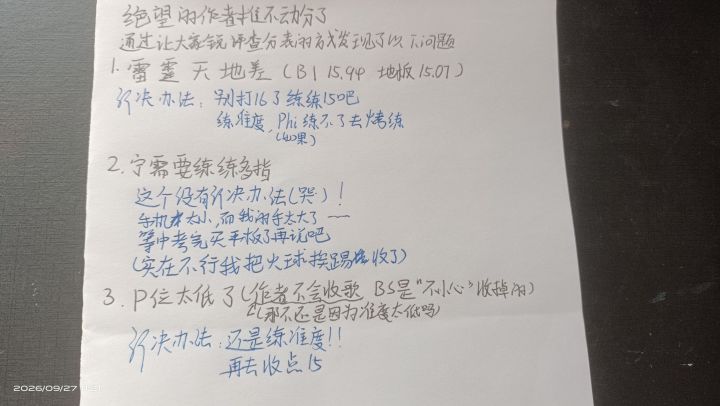 绝望的作者推不动分了
通过让大家锐评查分表的方式发现了以下问题
1. 雷霆天地差（B1 15.94 地板15.07）
解决办法：别打16了练练15吧
练准度，Phi练不了去烤练
（如果）
2. 宁需要练练多指
这个没有解决办法（哭）！
手机太小，而我的手太大了——
等中考完买平板了再说吧
（实在不行我把火球挨踢收了）
3. P位太低了（作者不会收歌 BS是"不小心"收掉的）
（那不还是因为准度太低吗）
解决办法：还是练准度！！
再去收点15
2026/09/27